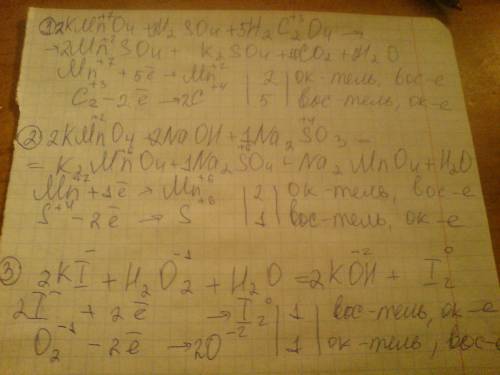 1) 2KMn⁺⁷O₄ + H₂SO₄ + 5H₂C₂⁺³O₄ →
→ 2Mn⁺²SO₄ + K₂SO₄ + CO₂ + H₂O
Mn⁺⁷ + 5ē → Mn⁺² | 2 | ок-тель, вос-е
C₂⁺³ - 2ē → 2C⁺⁴ | 5 | вос-тель, ок-е
2) 2KMnO₄ + 2NaOH + 1Na₂S⁺⁴O₃ -
= K₂Mn⁺⁶O₄ + 1Na₂S⁺⁶O₄ - Na₂MnO₄ + H₂O
Mn + 1ē → Mn⁺⁶ | 2 | ок-тель, вос-е
S⁺⁴ - 2ē → S⁺⁶ | 1 | вос-тель, ок-е
3) 2KI⁻ + H₂O₂⁻¹ + H₂O = 2KO⁻²H + I₂⁰
2I⁻ + 2ē → I₂⁰ | 1 | вос-тель, ок-е
O₂⁻¹ - 2ē → 2O⁻² | 1 | ок-тель, вос-е